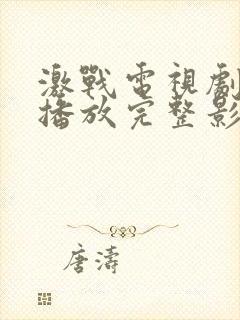 激戰電視劇
播放完整影
唐濤